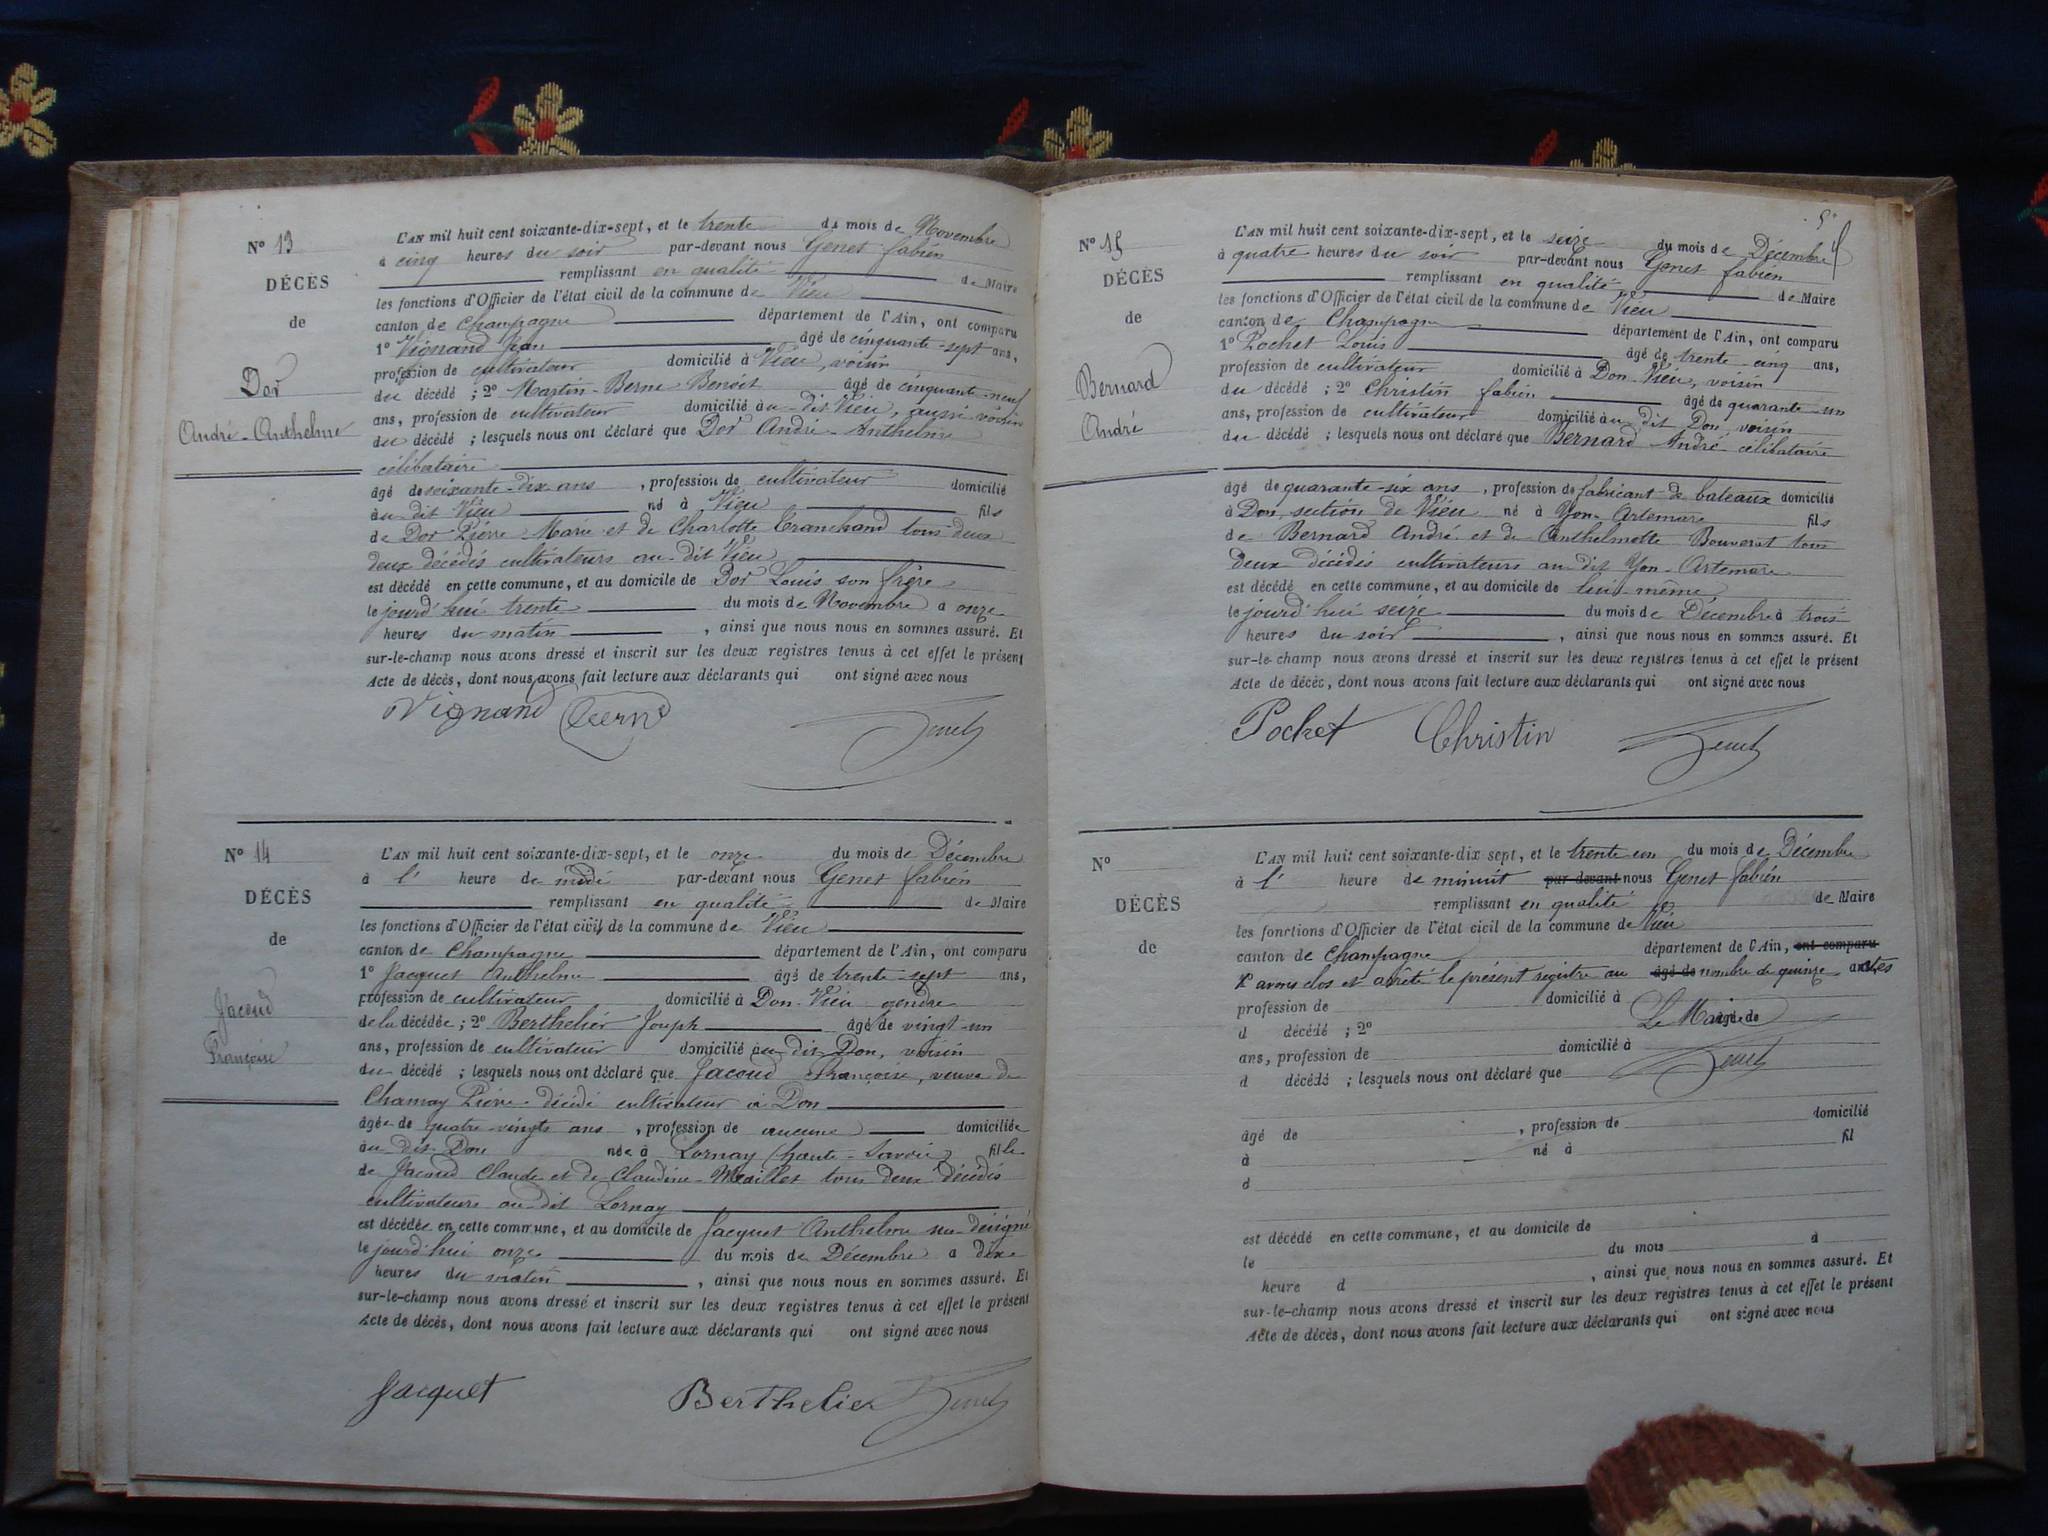 N° 13
DÉCÈS
de
Dor
André-Anthelme
L'AN mil huit cent soixante-dix-sept, et le trente du mois de Novembre
à cinq heures du soir par-devant nous Genet fabien
remplissant en qualité de Maire
les fonctions d'Officier de l'état civil de la commune de Vieu
canton de Champagne département de l'Ain, ont comparu
1° Vignand Jean âgé de cinquante-sept ans,
profession de cultivateur domicilié à Vieu, voisin
du décédé ; 2° Martin-Berne Benoit âgé de cinquante-neuf
ans, profession de cultivateur domicilié au-dit Vieu, aussi voisin
du décédé ; lesquels nous ont déclaré que Dor André-Anthelme
célibataire
âgé de soixante-dix ans , profession de cultivateur domicilié
au-dit Vieu né à Vieu fils
de Dor Pierre-Marie et de Charlotte Tranchand tous deux
deux décédés cultivateurs au-dit Vieu
est décédé en cette commune, et au domicile de Dor Louis son frère
le jourd'hui trente du mois de Novembre à onze
heures du matin , ainsi que nous nous en sommes assuré. Et
sur-le-champ nous avons dressé et inscrit sur les deux registres tenus à cet effet le présent
Acte de décès, dont nous avons fait lecture aux déclarants qui ont signé avec nous
Vignand Berne Genet
N° 14
DÉCÈS
de
Jacoud
Françoise
L'AN mil huit cent soixante-dix-sept, et le onze du mois de Décembre
à l' heure de midi par-devant nous Genet fabien
remplissant en qualité de Maire
les fonctions d'Officier de l'état civil de la commune de Vieu
canton de Champagne département de l'Ain, ont comparu
1° Jacquet Anthelme âgé de trente-sept ans,
profession de cultivateur domicilié à Don-Vieu gendre
de la décédée ; 2° Berthelier Joseph âgé de vingt-un
ans, profession de cultivateur domicilié au-dit Don, voisin
du décédé ; lesquels nous ont déclaré que Jacoud Françoise, veuve de
Chamay Pierre décédé cultivateur à Don
âgée de quatre-vingts ans , profession de aucune domiciliée
au-dit Don née à Lornay (haute-Savoie) fille
de Jacoud Claude et de Claudine Maillet tous deux décédés
cultivateurs au-dit Lornay
est décédée en cette commune, et au domicile de Jacquet Anthelme su-désigné
le jourd'hui onze du mois de Décembre à dix
heures du matin , ainsi que nous nous en sommes assuré. Et
sur-le-champ nous avons dressé et inscrit sur les deux registres tenus à cet effet le présent
Acte de décès, dont nous avons fait lecture aux déclarants qui ont signé avec nous
Jacquet Berthelier Genet
N° 15
DÉCÈS
de
Bernard
André
L'AN mil huit cent soixante-dix-sept, et le seize du mois de Décembre
à quatre heures du soir par-devant nous Genet fabien
remplissant en qualité de Maire
les fonctions d'Officier de l'état civil de la commune de Vieu
canton de Champagne département de l'Ain, ont comparu
1° Pochet Louis âgé de trente-cinq ans,
profession de cultivateur domicilié à Don-Vieu, voisin
du décédé ; 2° Christin fabien âgé de quarante-un
ans, profession de cultivateur domicilié au dit Don voisin
du décédé ; lesquels nous ont déclaré que Bernard André célibataire
âgé de quarante-six ans , profession de fabricant de bateaux domicilié
à Don, section de Vieu né à Yon-Artemare fils
de Bernard André et de Anthelmette Bouveret tous
deux décédés cultivateurs au dit Yon-Artemare
est décédé en cette commune, et au domicile de lui-même
le jourd'hui seize du mois de Décembre à trois
heures du soir , ainsi que nous nous en sommes assuré. Et
sur-le-champ nous avons dressé et inscrit sur les deux registres tenus à cet effet le présent
Acte de décès, dont nous avons fait lecture aux déclarants qui ont signé avec nous
Pochet Christin Genet
N°
DÉCÈS
de
L'AN mil huit cent soixante-dix sept, et le trente un du mois de Décembre
à l' heure de minuit par-devant nous Genet fabien
remplissant en qualité de Maire
les fonctions d'Officier de l'état civil de la commune de Vieu
canton de Champagne département de l'Ain, ont comparu
avons clos et arrêté le présent registre au âgé de nombre de quinze actes
profession de domicilié à
d décédé ; 2° Le Maire âgé de
ans, profession de domicilié à
d décédé ; lesquels nous ont déclaré que Genet
âgé de , profession de domicilié
à né à fil
d
est décédé en cette commune, et au domicile de
le du mois à
heure d , ainsi que nous nous en sommes assuré. Et
sur-le-champ nous avons dressé et inscrit sur les deux registres tenus à cet effet le présent
Acte de décès, dont nous avons fait lecture aux déclarants qui ont signé avec nous